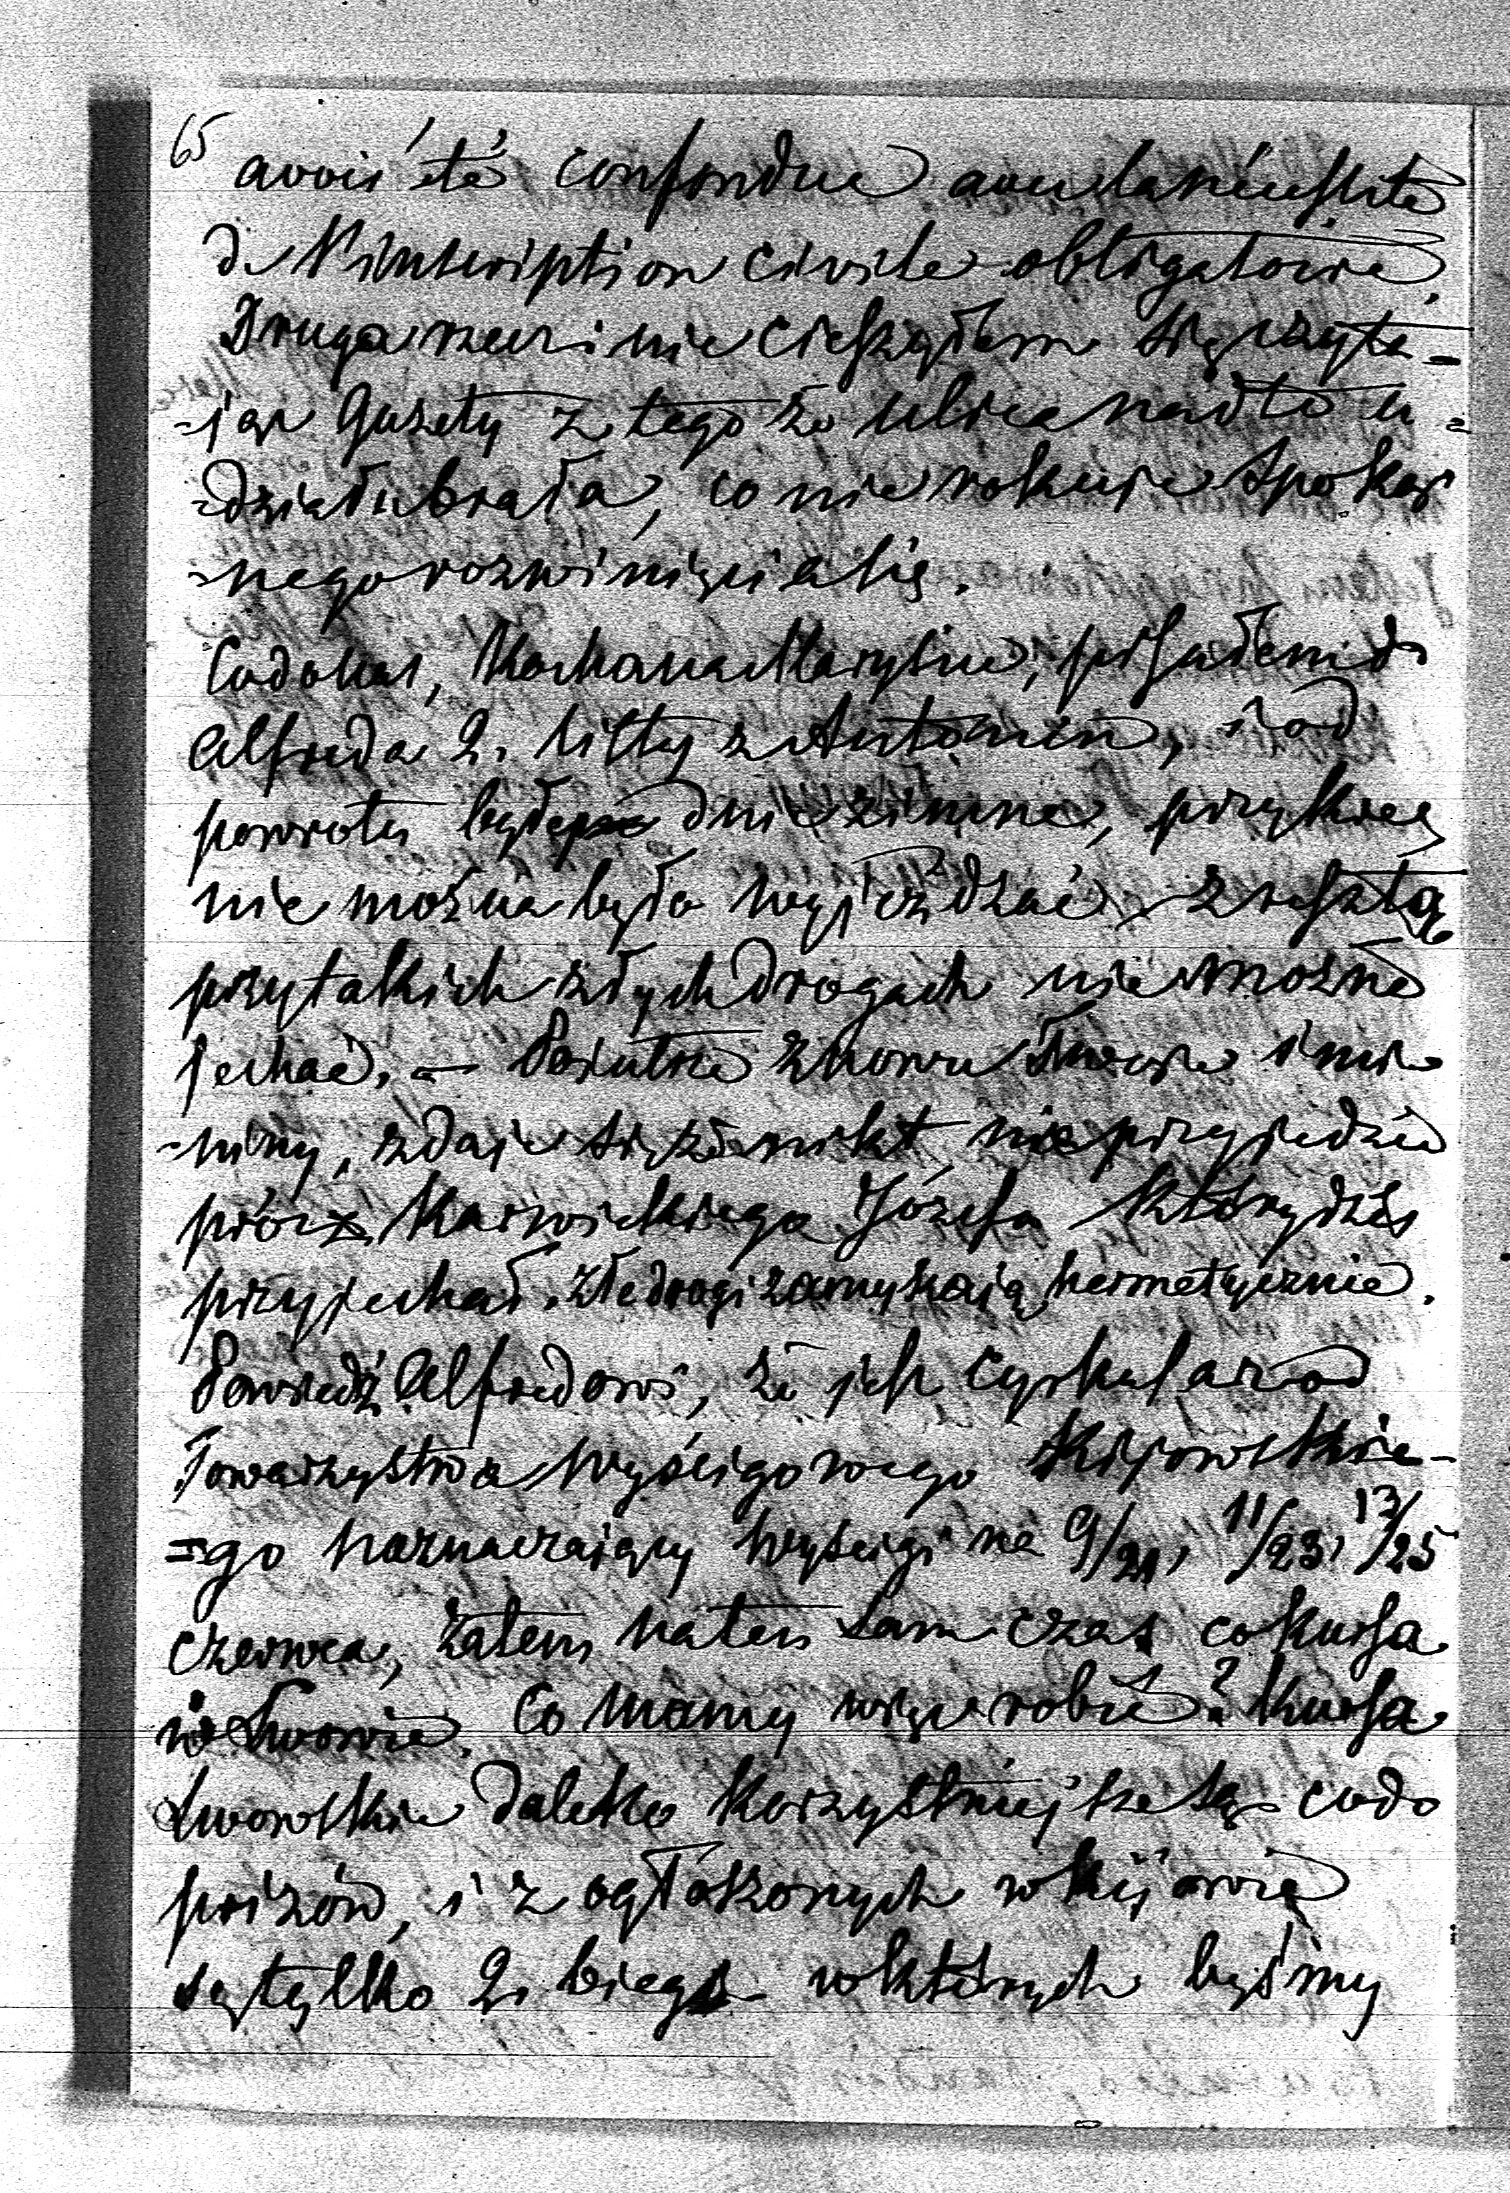 65
avoir été confondue avec la nécessité
de l'inscription civile obligatoire.
Druga rzecz i nie cieszyłem się czyta-
-jąc Gazety z tego że ulica nadto u-
-działu brała, co nie rokuje spokoj
-nego rozwinięcia się.
Co do nas, Kochana Marysiu, posłałem do
Alfreda 2. listy z Antonin, i od
powrotu były dnie zimne, przykre
nie można było wyjeżdżać, zresztą
przy takich złych drogach nie można
jechać. – Pojutrze znowu Twoje imie
-niny, zdaje się że nikt nie przyjedzie
prócz Karwickiego Józefa który dziś
przyjechał. Złe drogi zamykają hermetycznie.
Powiedz Alfredowi, że jest cyrkularz od
Towarzystwa wyścigowego Kijowskie-
=go naznaczający wyścigi na 9/21, 11/23, 13/25
czerwca, zatem na ten sam czas co kursa
we Lwowie. Co mamy więc robić? Kursa
Lwowskie daleko korzystniejsze są co do
prizów, i z ogłoszonych w Kijowie
są tylko 2. biegi w których byśmy